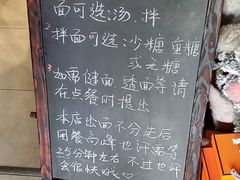 面可选:汤.拌
2 拌面可选:少糖 重糖
或无糖
3 如需健面 透面等 请
在点餐时提出
本店出面不分先后
用餐高峰也许需等
25分钟左右 不过也许
会很快哦♡